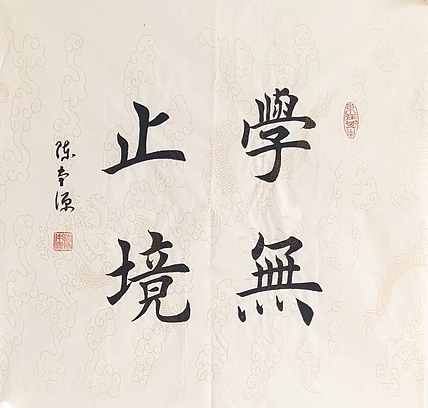 學無
止境
陈本源